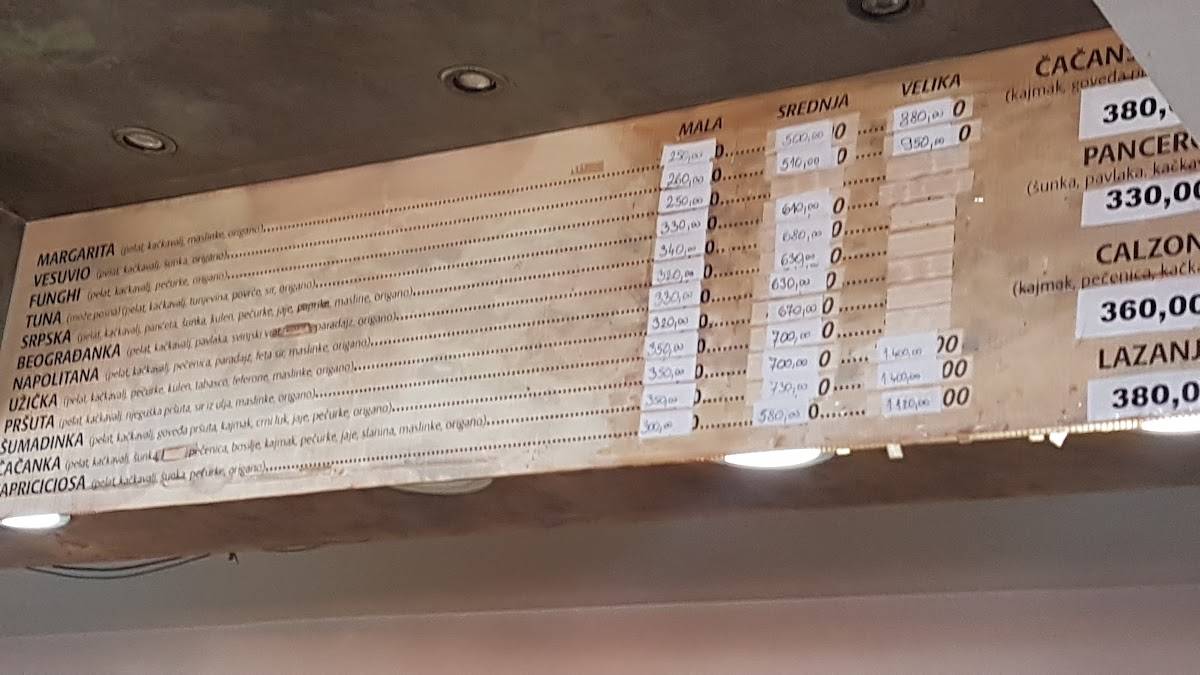 MALA SREDNJA VELIKA
MARGARITA (pelat, kačkavalj, maslinke, origano) 250,00 500,00 880,00
VESUVIO (pelat, kačkavalj, šunka, origano) 260,00 510,00 950,00
FUNGHI (pelat, kačkavalj, pečurke, origano) 250,00
TUNA (može posna) (pelat, kačkavalj, tunjevina, povrće, sir, origano) 330,00
SRPSKA (pelat, kačkavalj, panceta, šunka, kulen, pečurke, jaje, paprike, masline, origano) 340,00 680,00
BEOGRAĐANKA (pelat, kačkavalj, pavlaka, svinjski vrat, paradajz, origano) 320,00 630,00
NAPOLITANA (pelat, kačkavalj, pečenica, paradajz, feta sir, maslinke, origano) 330,00 630,00
UŽIČKA (pelat, kačkavalj, pečurke, kulen, tabasco, feferone, maslinke, origano) 320,00 670,00
PRŠUTA (pelat, kačkavalj, njeguška pršuta, sir iz ulja, maslinke, origano) 350,00 700,00
ŠUMADINKA (pelat, kačkavalj, goveđa pršuta, kajmak, crni luk, jaje, pečurke, origano) 350,00 700,00 1.400,00
ČAČANKA (pelat, kačkavalj, šunka, pečenica, bosilje, kajmak, pečurke, jaje, slanina, maslinke, origano) 350,00 730,00 1.400,00
APRICICIOSA (pelat, kačkavalj, šunka, pečurke, origano) 300,00 580,00 1.120,00
ČAČANS
(kajmak, goveđa
380,
PANCER
(šunka, pavlaka, kačka
330,00
CALZON
(kajmak, pečenica, kačk
360,00
LAZANJ
380,0